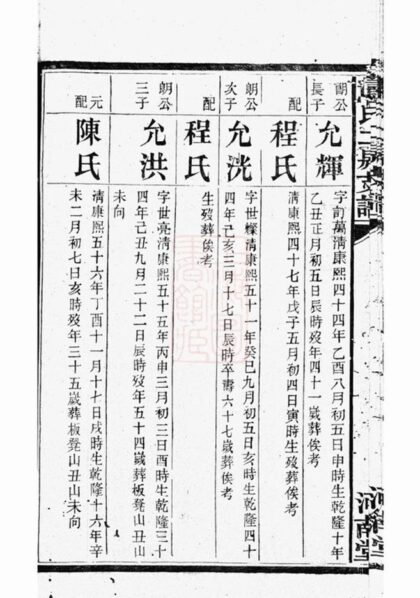 朗公
長子
允輝
字前萬清康熙四十四年乙酉八月初五日申時生乾隆十年
乙丑正月初五日辰時歿年四十一歲葬俟考
配
程氏
清康熙四十七年戊子五月初四日寅時生歿葬俟考
朗公
次子
允洸
字世㷍清康熙五十一年癸巳九月初五日亥時生乾隆四十
四年己亥三月十七日辰時卒壽六十七歲葬俟考
配
程氏
生歿葬俟考
朗公
三子
允洪
字世亮清康熙五十五年丙申三月初三日酉時生乾隆三十
四年己丑九月二十二日辰時歿年五十四歲葬板凳山丑山
未向
元配
陳氏
清康熙五十六年丁酉十一月十七日戌時生乾隆十六年辛
未二月初七日亥時歿年三十五歲葬板凳山丑山未向
河南堂